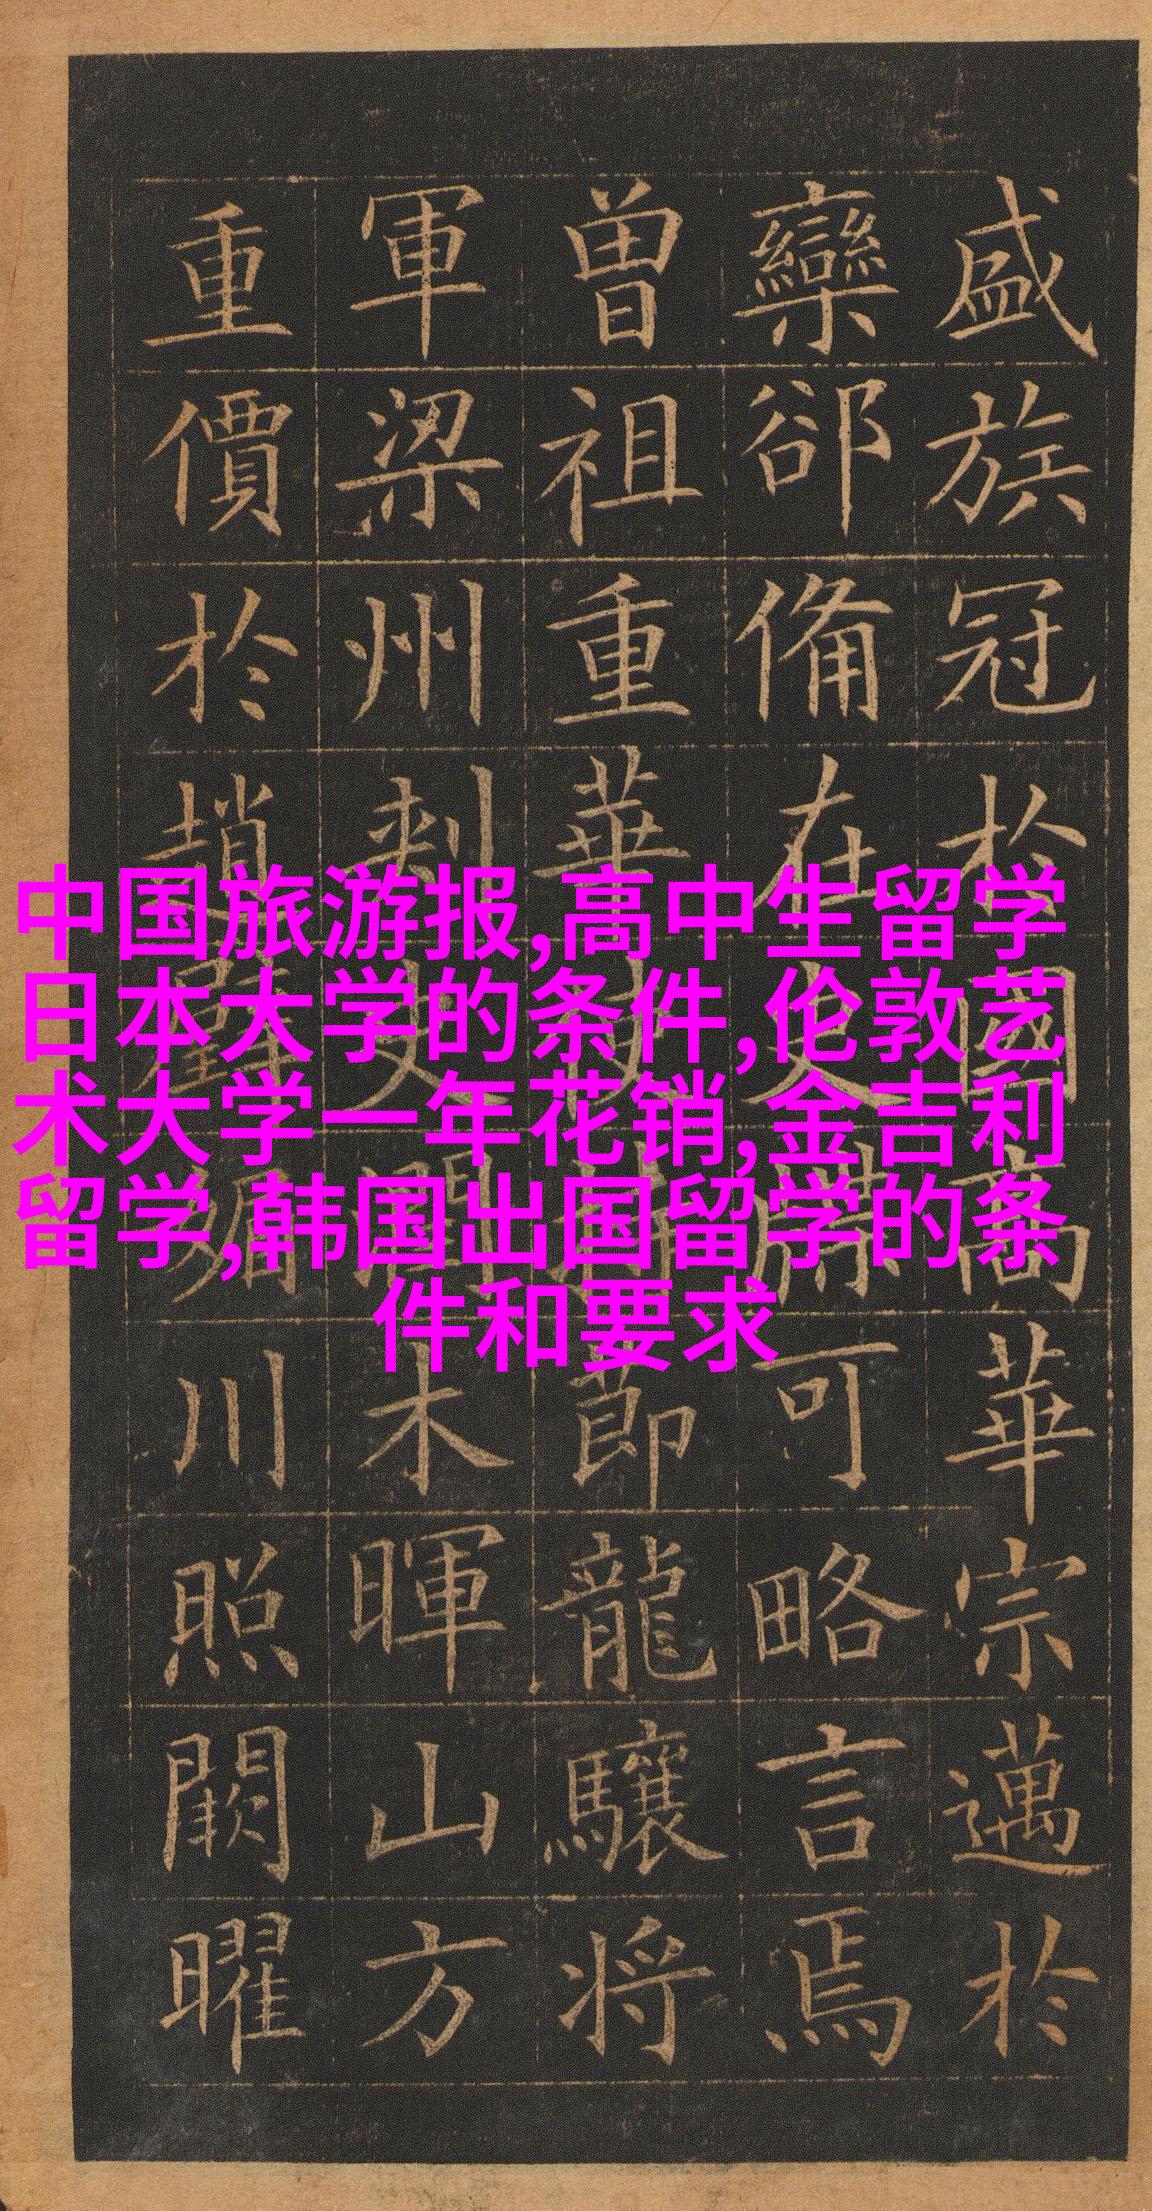 盛族冠於國高華宗邁於
欒郤俻在史牒可略言焉
曾祖重華使持莭龍驤将
軍梁州刾史潤木暉山方
重價於趙璧媚川照闕曜
中国旅游报,高中生留学
日本大学的条件,伦敦艺
术大学一年花销,金吉利
留学,韩国出国留学的条
件和要求